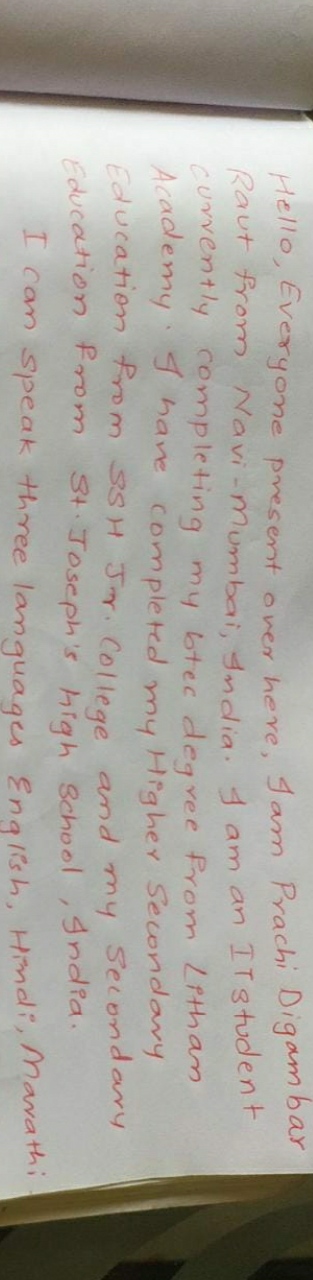 Hello, Everyone present over here, I am Prachi Digambar
Raut from Navi-Mumbai, India. I am an IT student
currently completing my btec degree from Litham
Academy. I have completed my Higher Secondary
Education from SSH Jr. College and my Secondary
Education from St. Joseph's high School, India.
I can speak three languages English, Hindi, Marathi